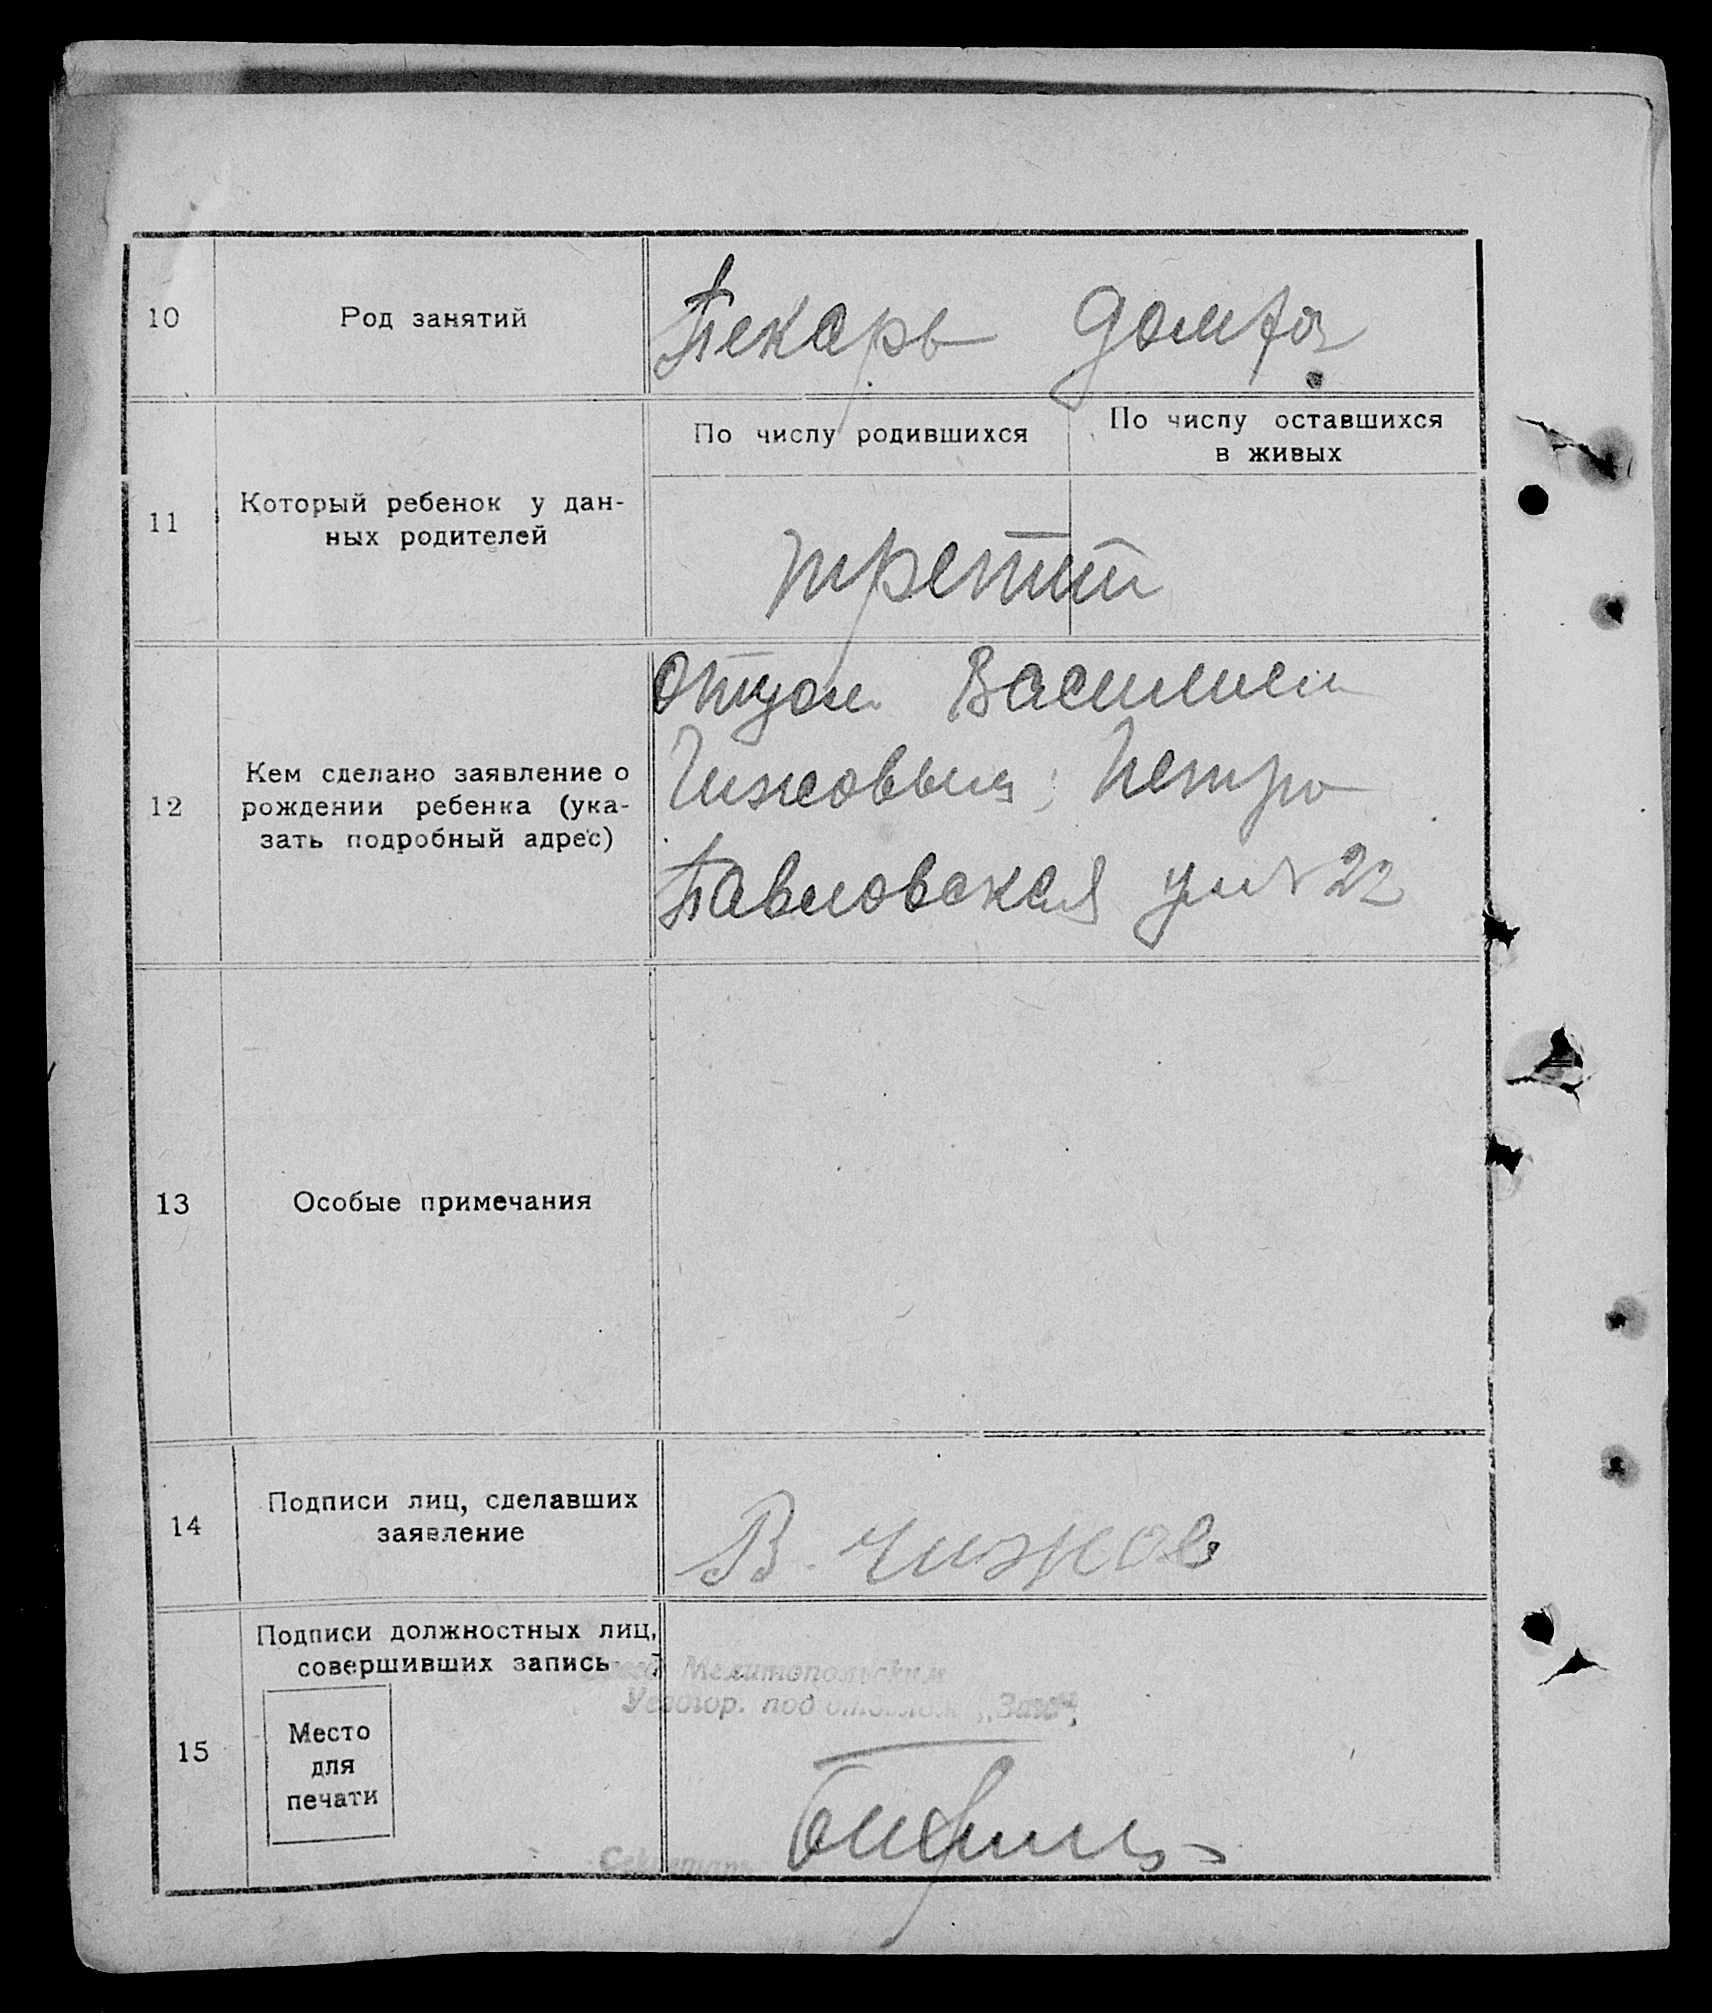 10 Род занятий Пекарь дом/хоз
По числу родившихся
По числу оставшихся
в живых
11
Который ребенок у дан-
ных родителей
третий
12
Кем сделано заявление о
рождении ребенка (ука-
зать подробный адрес)
Отцом Василием
Чижовым; Петро
Павловская ул № 22
13 Особые примечания
14
Подписи лиц, сделавших
заявление
В. Чижов
15
Подписи должностных лиц,
совершивших запись
Мелитопольским
под
Место
для
печати
Секретарь